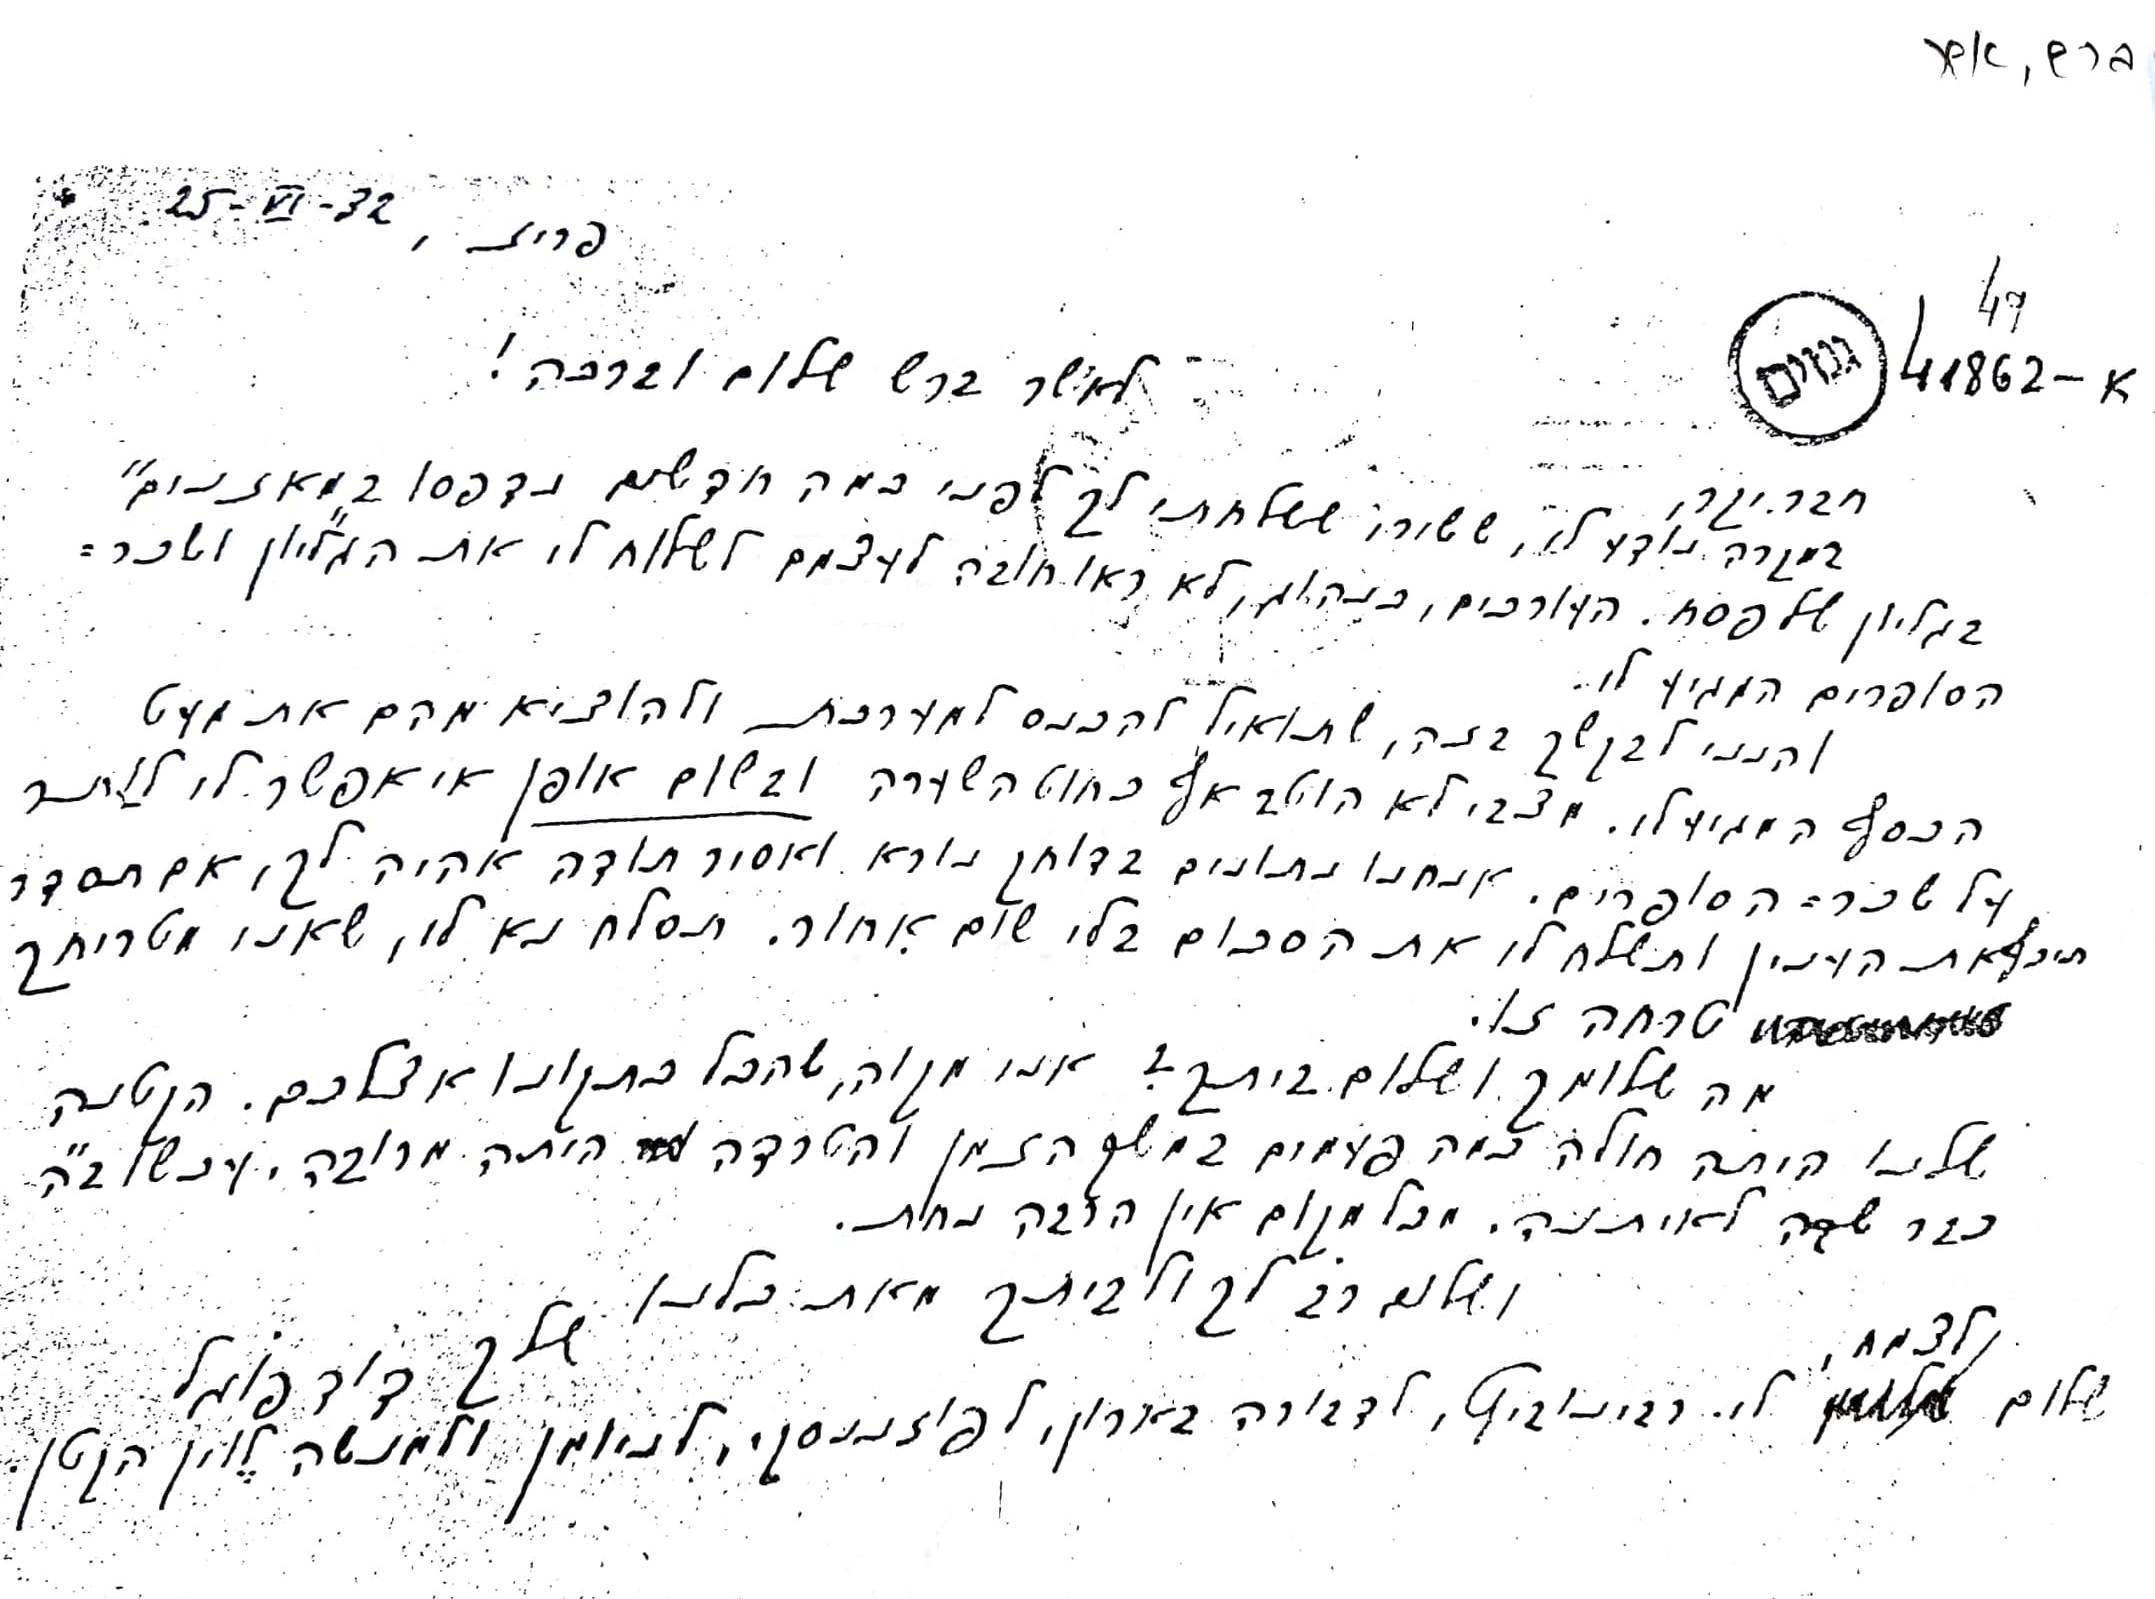 ברש, אשר
פריז, 25-VI-32
49
א-41862
גנזים
לאשר ברש שלום וברכה!
חבר יקר,
במקרה נודע לי, ששירי ששלחתי לך לפני כמה חדשים נדפסו ב"מאזנים"
בגליון של פסח. העורכים, כנהוג, לא ראו חובה לעצמם לשלוח לי את הגליון ושכר=
הסופרים המגיע לי.
והנני לבקשך בזה, שתואיל להכנס למערכת ולהוציא מהם את מעט
הכסף המגיע לי. מצבי לא הוטב אף כחוט השערה ובשום אופן אי אפשר לי לותר
על שכר=הסופרים. אנחנו נתונים בדוחק נורא ואסיר תודה אהיה לך, אם תסדר
תיכף את הענין ותשלח לי את הסכום בלי שום אחור. תסלח נא לי, שאני מטריחך
טרחה זו.
מה שלומך ושלום ביתך? אני מקוה, שהכל כתקונו אצלכם. הקטנה
שלנו היתה חולה כמה פעמים במשך הזמן והטרדה היתה מרובה, עכשו ב"ה
כבר שבה לאיתנה. מכל מקום אין הרבה נחת.
ושלום רב לך ולביתך מאת כלנו
שלך דוד פוגל
ולצמח,
שלום לי. רבינוביץ, לדבורה בארון, לפוזננסקי, לניומן ולמנשה לוין הקטן.